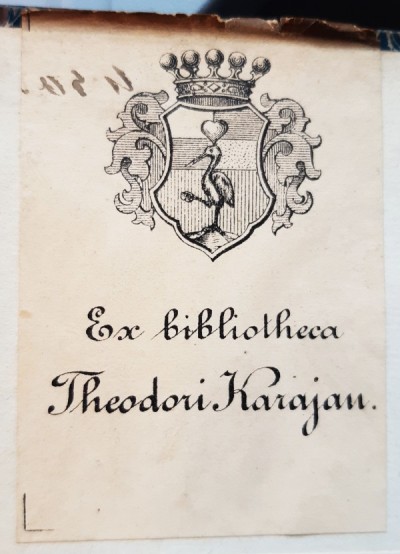 Ex bibliotheca
Theodori Karajan.